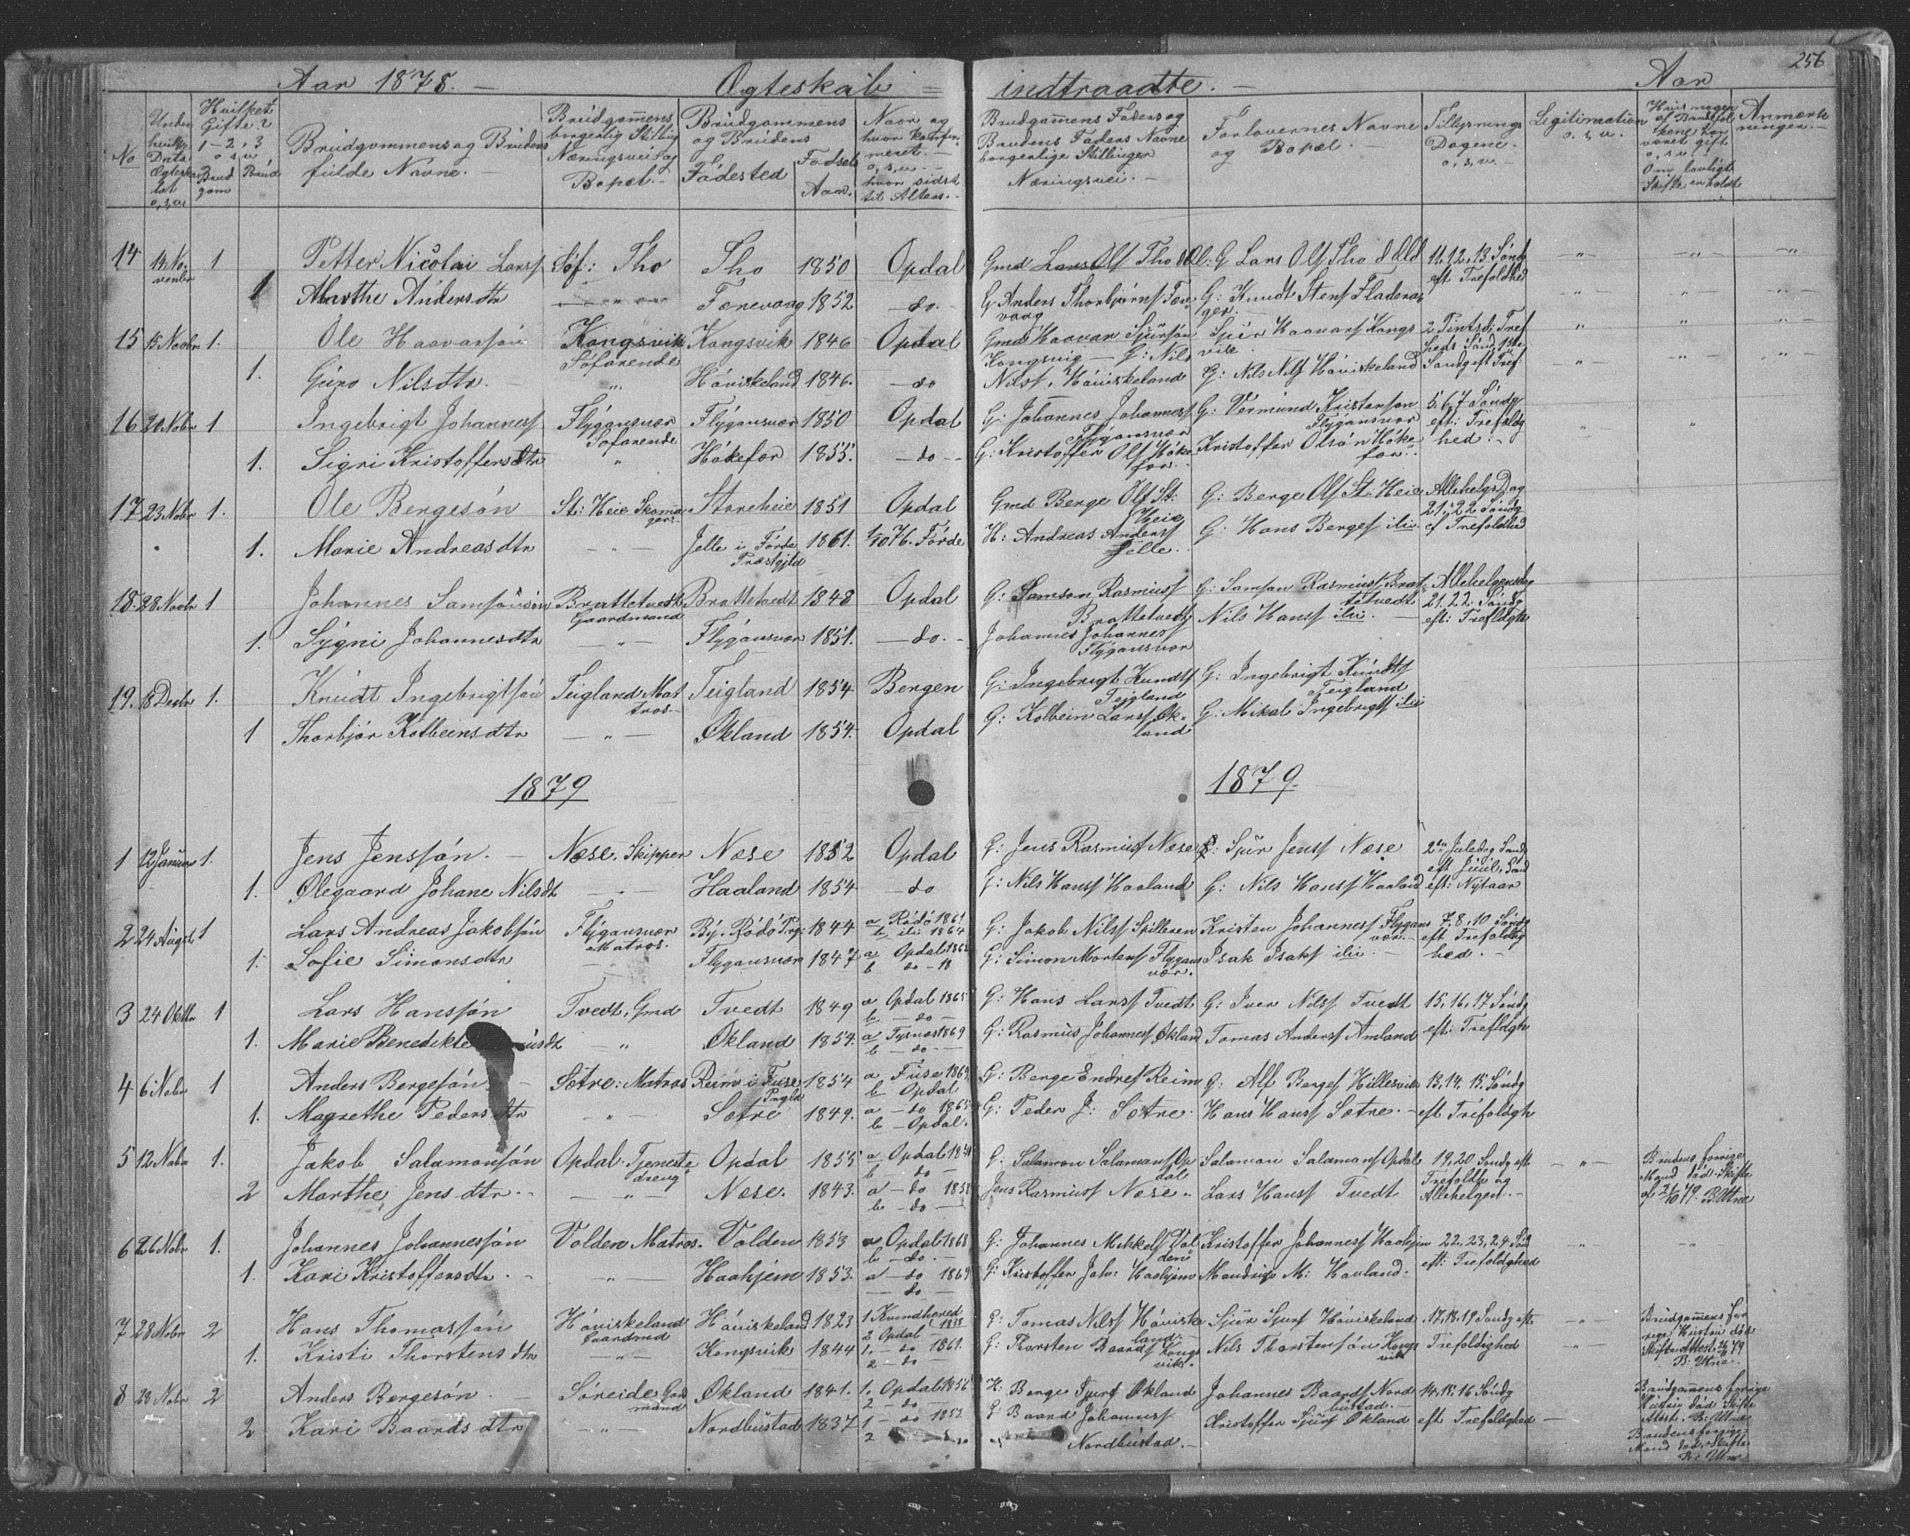 256
Aar 1878. — Ægteskab = indtraadte. — Aar
No
Hvilket Gifte? 1-2, 3 o, s, v
Brudgom Brud
Brudgommens og Brudens fulde Navne. —
Brudgommens borgerlig Stilling Næringsvei og Bopæl. —
Brudgommens og Brudens Fødested
Fødsels Aar.
Naar og hvor konfirmeret. — o, s, v. — hvor sidst til Alters. —
Brudgommens Faders og Brudens Faders Navne borgerlige Stillinger Næringsvei. —
Forlovernes Navne og Bopæl. —
Tillysnings Dagene. o, s, v. —
Legitimation o. s. v. —
Om lovligt Skifte er holdt
Anmærkninger. —
14 14 November 1 Petter Nicolai Larsf Søf: Tho Tho 1850 Opdal Gmd Lars Olf Tho G Lars Olf Tho 11, 12, 13 Søndg eft Trefoldhed
1 Marthe Andersdtr Fænevaag 1852 — do — G Anders Thorbjørnf Fænevaag G: Knudt Stenf Fladerager —
15 15 Novbr 1. Ole Haavarsøn Kongsvik Søfarende Kongsvik 1846 Opdal Gmd Haavar Sjursøn Kongsvig — Sjur Haavarf Kongsvik
1. Guro Nilsdtr. — Høviskeland 1846. — do G: Nils Nilsf. Høviskeland G: Nils Nilf Høviskeland
16 20 Novbr 1 Ingebrigt Johannesf Flygansvær Søfarende Flygansvær 1850 Opdal G: Johannes Johannesf Flygansvær G: Vermund Kristensøn Flygansvær 5, 6, 7 Søndg eft: Trefoldighed. —
1. Sigri Kristoffersdtr " Høkefor 1855. — do — G: Kristoffer Olf Høkefor. Kristoffer Olsøn Høkefor. —
17 23 Novbr 1. Ole Bergesøn St: Heie Skomager Storeheie 1851 Opdal Gmd Berge Olf St: Heie G: Berge Olf St: Heie Allehelgsdag 21, 22 Søndg ef Trefoldhed
1. Marie Andreasdtr — " — Jelle i Førde Præstgjld 1861. 1/10 76. Førde H: Andreas Andersf Jelle. G: Hans Bergef ibi —
18. 28 Novbr 1 Johannes Samsonsøn Brattetvedt Gaardmand Brattetvedt 1848 Opdal G: Samson Rasmusf Brattetvedt G: Samson Rasmusf Brattetvedt Allehelgensdag 21. 22. Søndg eft: Trefldgh
1. Sygni Johannesdtr — " — Flygansvær 1851. — do. — Johannes Johannesf Flygansvær Nils Hansf ibi. —
19. 18 Decbr 1. Knudt Ingebrigtsøn Teigland Matros — Teigland 1854 Bergen G: Ingebrigt Knudtf Teigland G: Ingebrigt Knudtf Teigland
1 Thorbjør Kolbeinsdtr — " — Økland 1854. Opdal G: Kolbein Larsf Økland G. Mikal Ingebrigtf ibi
1879 1879.
1 12 Januar 1. Jens Jensøn. — Næse. Skipper Næse 1852 Opdal G: Jens Rasmusf Næse G: Sjur Jensf Næse
1. Ølegaard Johane Nilsdt — " — Haaland 1854 — do G: Nils Hansf Haaland G: Nils Hansf Haaland eft: Nytaar
2 24 August 1 Lars Andreas Jakobsøn Flygansvær Matros. By. Rødø Prg. 1844 a Rødø 1861 b ibi 1864 G: Jakob Nilsf Spilleren Kristen Johannesf Flygansvær. — 7, 8, 10 Søndg eft Trefoldighed. —
1. Sofie Simonsdtr — Flygansvær 1847 a Opdal 1862 b do — 18 G: Simon Mortenf Flygansvær. Isak Isakf ibi. —
3 24 Oktbr 1 Lars Hanssøn Tvedt, Gmd Tvedt 1849 a Opdal 1865 b — do — G: Hans Larsf Tvedt G: Iver Nilsf Tvedt 15, 16, 17 Søndg eft: Trefldgh
1. Marie Benedikte — " — Økland 1854. a Tysnes 1869 b — do — G: Rasmus Johannesf Økland Tomas Andersf Amland
4 6 Novbr 1 Anders Bergesøn — Sætre: Matros Reim i Fuse Prgld 1854 a Fuse 1869 b Opdal G: Berge Endref Reim G: Alf Bergef Hillesvik 13, 14, 15. Søndg eft Trefoldgh
1. Magrethe Pedersdtr — " — Sætre 1849. a — do 1865 b — Opdal. G: Peder J: Sætre. Hans Hansf Sætre. —
5 12 Novbr 1. Jakob Salamonsøn Opdal Tjenestedreng Opdal 1855 a Opdal b — do — G. Salamon Salamonsf Opdal Salamon Salamonsf Opdal 19, 20 Søndg eft Trefoldg og Allehelgen. — — " — Brudens forrige Mand død. Skifte
2 Marthe Jensdtr. — — " — Næse. 1843. a — do 1858 b — do — Jens Rasmusf Næse. Lars Hansf Tvedt
6 26 Novbr 1. Johannes Johannessøn Volden Matros. Volden 1853 a Opdal 1868 b — do — G: Johannes Mikkelf Volden Kristoffer Johannesf Haahjem 22, 23, 24 Snd eft: Trefoldghed " — " —
1. Kari Kristoffersdtr. — — " — Haahjem 1853. a — do 1869 — do — G: Kristoffer Joh: Haahjem Mandrup M: Havland.
7 28 Novbr 2 Hans Thomassøn Høviskeland Gaardmd Høviskeland 1823 1. Kvindhered 2 Opdal — G: Tomas Nilsf Høviskeland. — Sjur Sjurf Høviskeland 17, 18, 19 Søndg eft. Trefoldighed — " — Brudgommens forrige Hustru død
1. Kristi Thorstensdtr — " — Kongsvik 1844 1. — do 1861. 2 — do — G: Thorsten Baardf Kongsvik. Nils Thorstensøn Kongsvik
8 28 Novbr 2 Anders Bergesøn. — Søreide Gardmand Økland 1841. 1. Opdal 1856 2 — do — H: Berge Sjurf Økland Johannes Baardf Nordbustad. — 14. 15. 16 Søndg eft Trefoldghed — Brudgommens forrige Hustru død Skifte Attest. B: Utne
2 Kari Baardsdtr — " — Nordbustad 1837 1 — do 1852 2 G: Baard Johannesf Nordbustad. — Kristoffer Sjurf Økland Brudens forrige Mand død. Skifte B: Utne